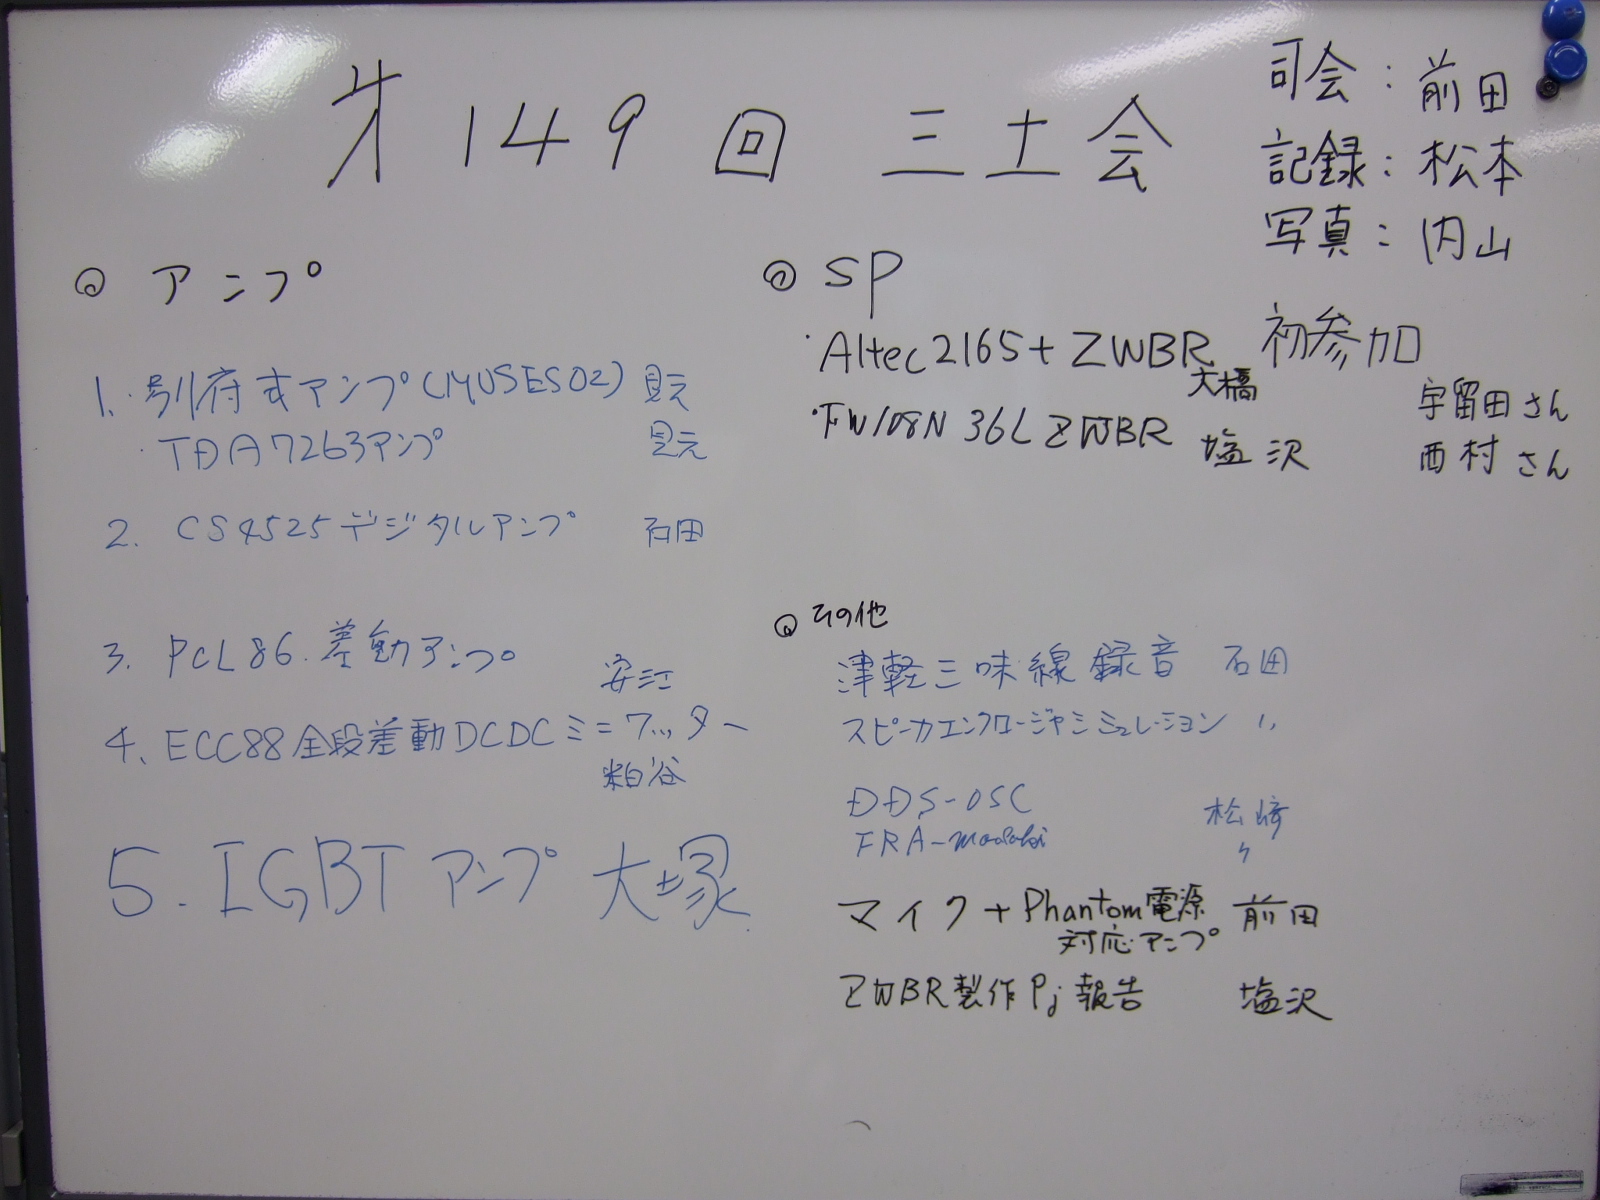 第149回 三土会
司会：前田
記録：松本
写真：内山
◎ アンプ
1. 別府式アンプ(MUSES02) 見元
・TDA7263アンプ 見元
2. CS4525デジタルアンプ 石田
3. PCL86 差動アンプ
安江
4. ECC88全段差動DCDCミニワッター
粕谷
5. IGBTアンプ 大塚
◎ SP
・Altec2165+ZWBR
大橋
・FW108N 36L ZWBR 塩沢
初参加
宇留田さん
西村さん
◎ その他
津軽三味線録音 石田
スピーカエンクロージャシミュレーション 〃
DDS-OSC 松崎
FRA-modoki 〃
マイク+Phantom電源 前田
対応アンプ
ZWBR製作Pj報告 塩沢